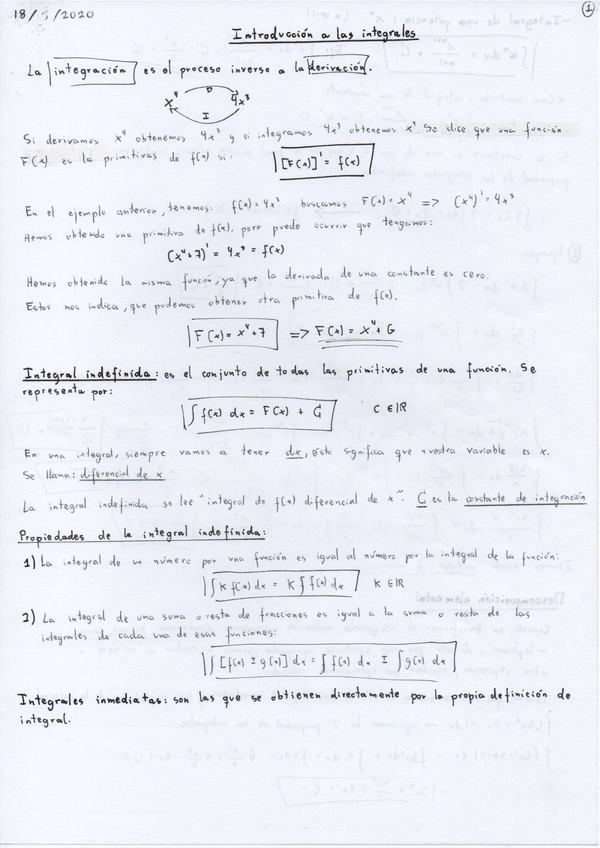 18/5/2020
1
Introducción a las integrales
La integración es el proceso inverso a la derivación.
D
x⁴ 4x³
I
Si derivamos x⁴ obtenemos 4x³ y si integramos 4x³ obtenemos x⁴. Se dice que una función
F(x) es la primitivas de f(x) si: [F(x)]' = f(x)
En el ejemplo anterior, tenemos: f(x) = 4x³ buscamos F(x) = x⁴ => (x⁴)' = 4x³
Hemos obtenido una primitiva de f(x), pero puede ocurrir que tengamos:
(x⁴+7)' = 4x³ = f(x)
Hemos obtenido la misma función, ya que la derivada de una constante es cero.
Estos nos indica, que podemos obtener otra primitiva de f(x).
F(x) = x⁴+7 => F(x) = x⁴+C
Integral indefinida: es el conjunto de todas las primitivas de una función. Se
representa por:
∫ f(x) dx = F(x) + C C ∈ ℝ
En una integral, siempre vamos a tener dx, ésto significa que nuestra variable es x.
Se llama: diferencial de x
La integral indefinida se lee "integral de f(x) diferencial de x". C es la constante de integración
Propiedades de la integral indefinida:
1) La integral de un número por una función es igual al número por la integral de la función:
∫ K f(x) dx = K ∫ f(x) dx K ∈ ℝ
2) La integral de una suma o resta de fracciones es igual a la suma o resta de las
integrales de cada una de esas funciones:
∫ [f(x) ± g(x)] dx = ∫ f(x) dx ± ∫ g(x) dx
Integrales inmediatas: son las que se obtienen directamente por la propia definición de
integral.